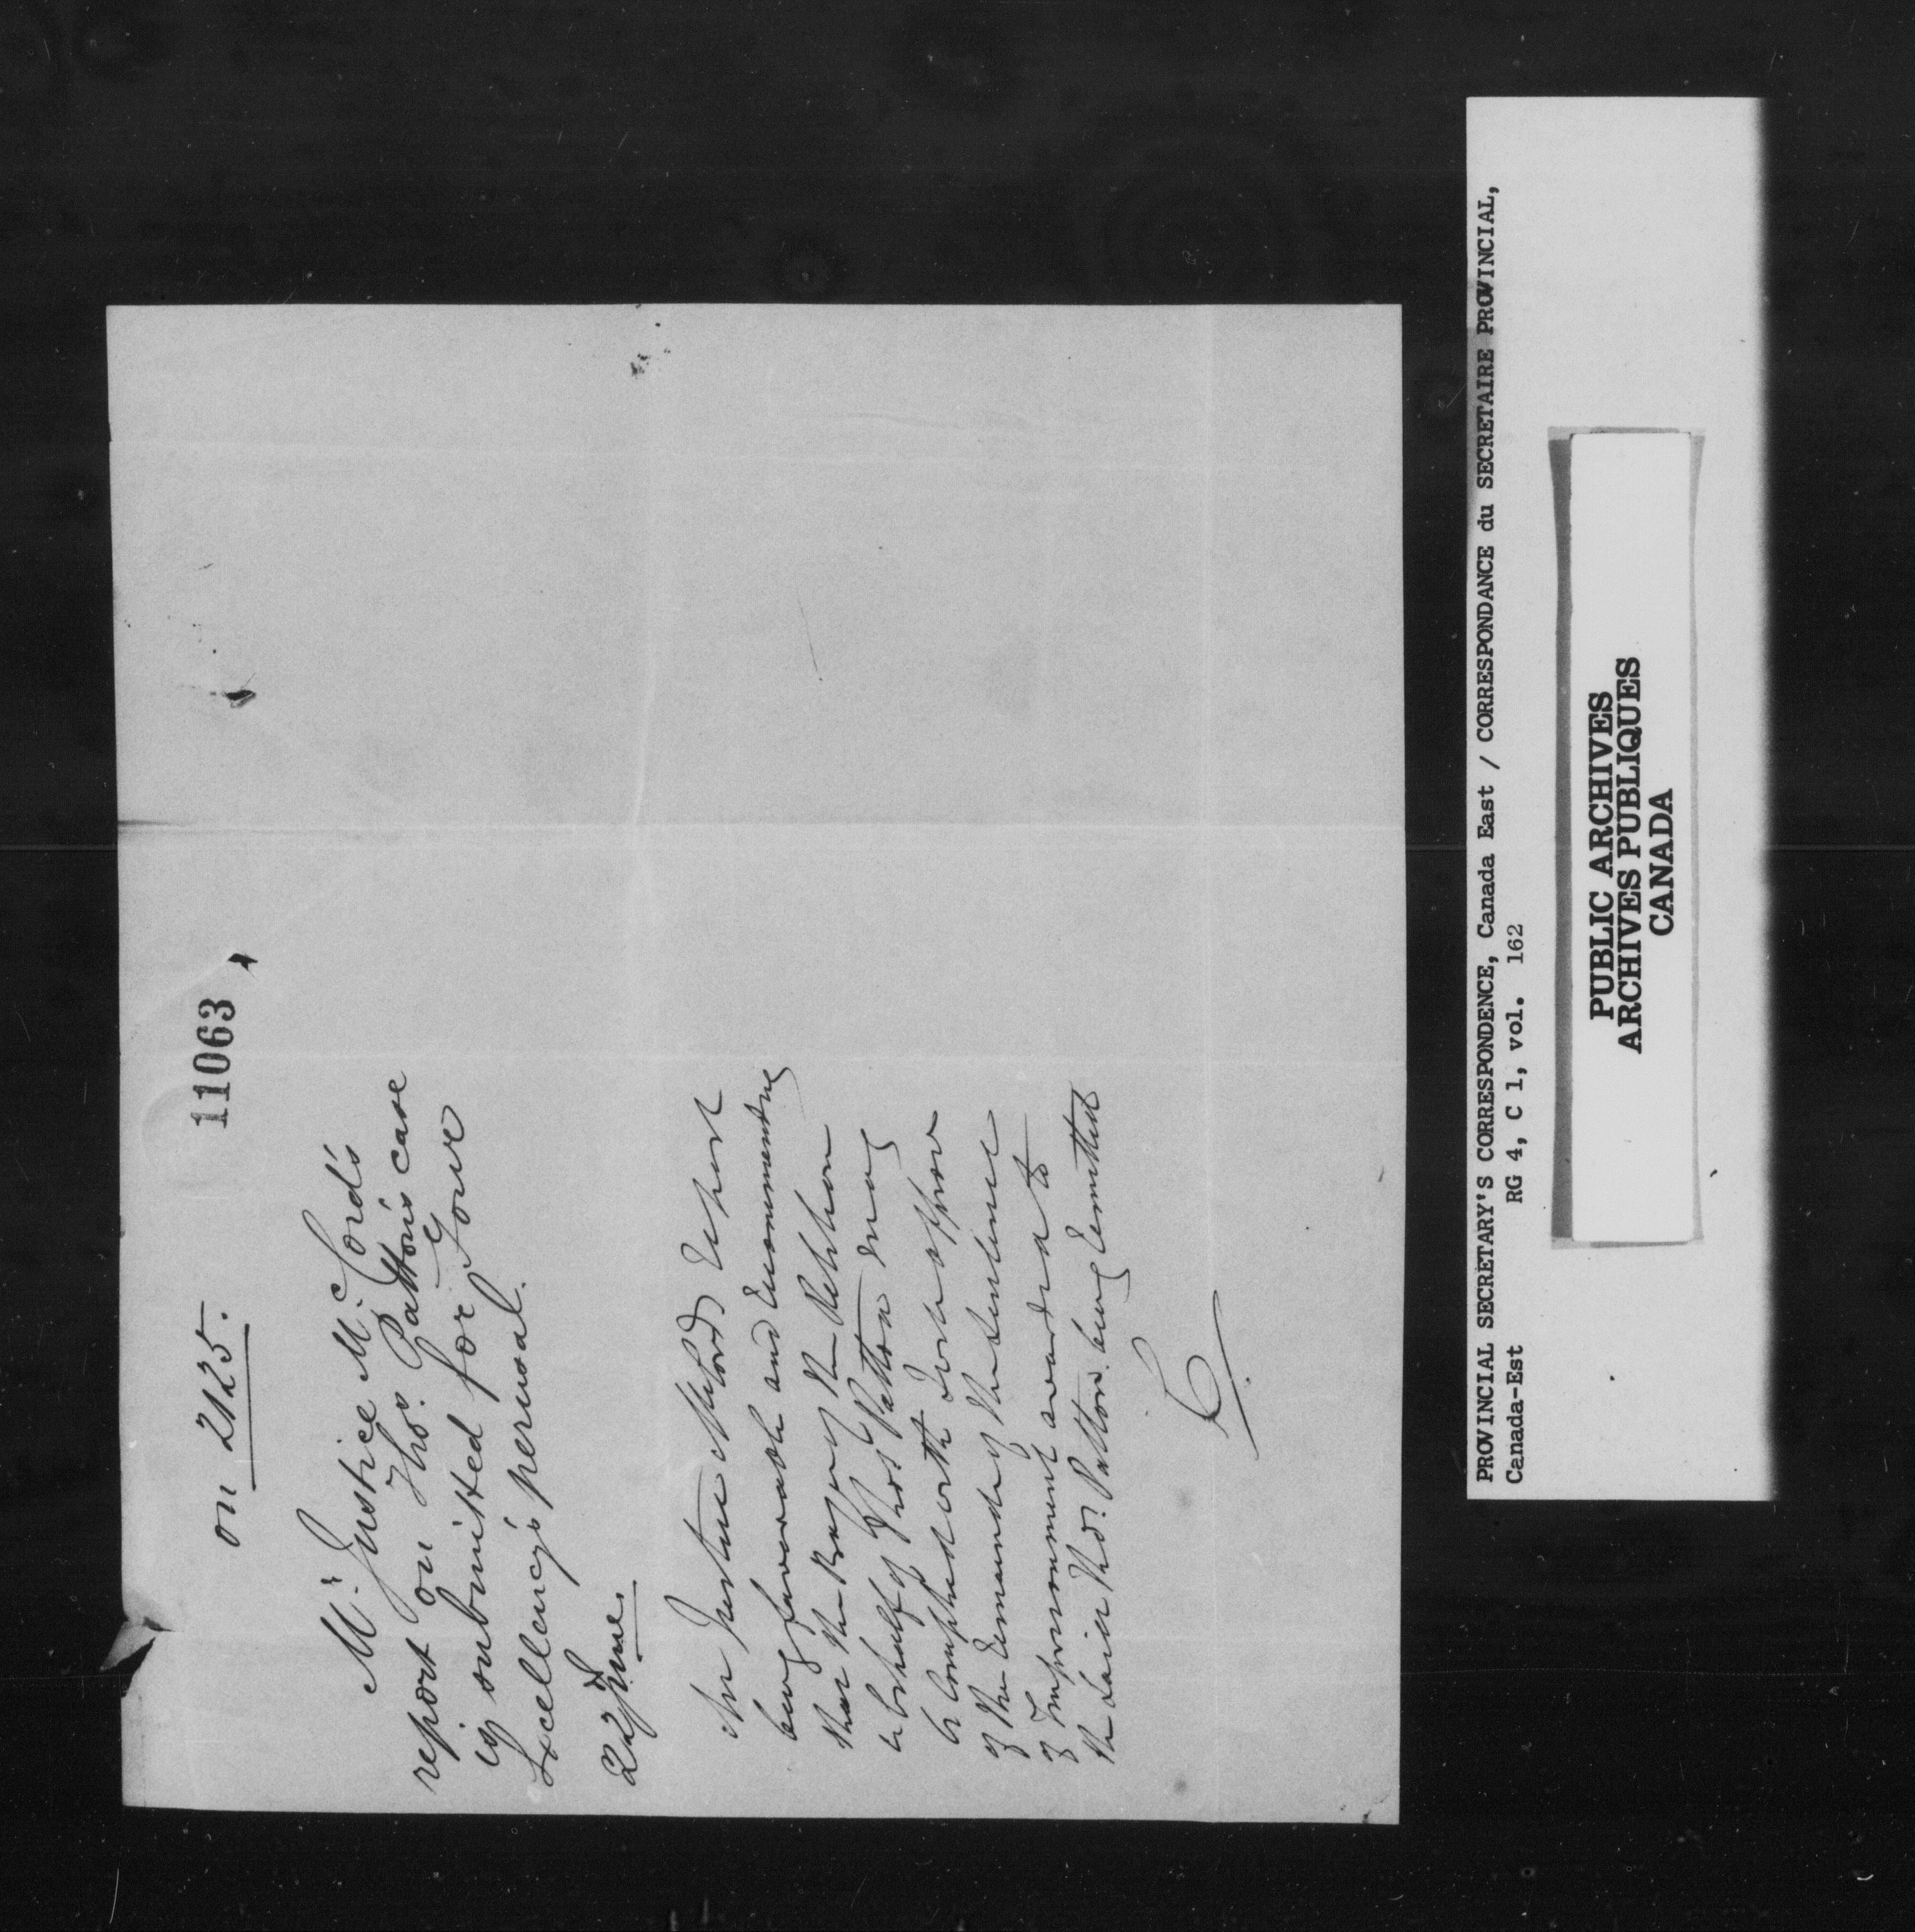 11063
on 2125.
Mr. Justice McCord's
report on Thos. Patton's case
is submitted for Your
Excellency's perusal.
22 June.
Mr Justice McCords Report
being favourable and recommending
that the Prayer of the Petition
in behalf of Thos Patton may
be complied with I approve
of the remainder of the sentence
of Imprisonment awarded to
the said Thos. Patton being remitted
PROVINCIAL SECRETARY'S CORRESPONDENCE, Canada East / CORRESPONDANCE du SECRETAIRE PROVINCIAL,
Canada-Est RG 4, C 1, vol. 162
PUBLIC ARCHIVES
ARCHIVES PUBLIQUES
CANADA